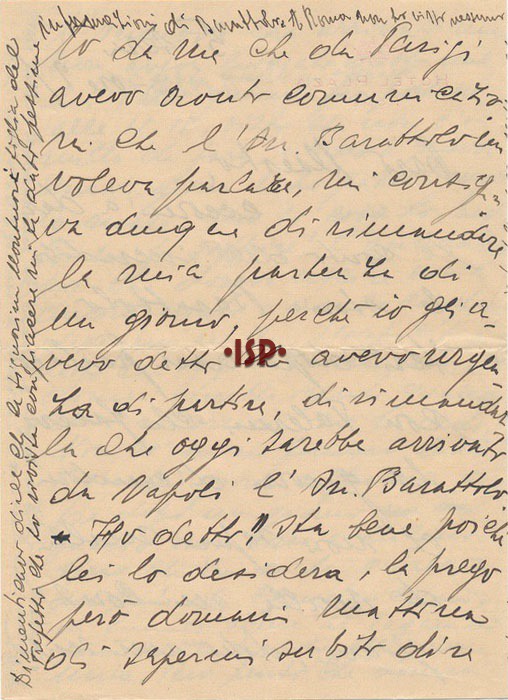 informazioni di Barattolo. A Roma non ho visto nessuno
to da me che da Parigi
avevo avuto comunicazio-
ni che l'Av. Barattolo mi
voleva parlare, mi consiglia-
va dunque di rimandare
la mia partenza di
un giorno, perché io gli a-
vevo detto che avevo urgen
za di partire, di rimandar
la che oggi sarebbe arrivato
da Napoli l'Av. Barattolo
Ho detto! Sta bene poiché
lei lo desidera, la prego
però domani mattina
di sapermi subito dire
Dimenticavo dirle che la signorina figlia del
Prefetto che ho avvertita con piacere mi ha dato
·ISP·